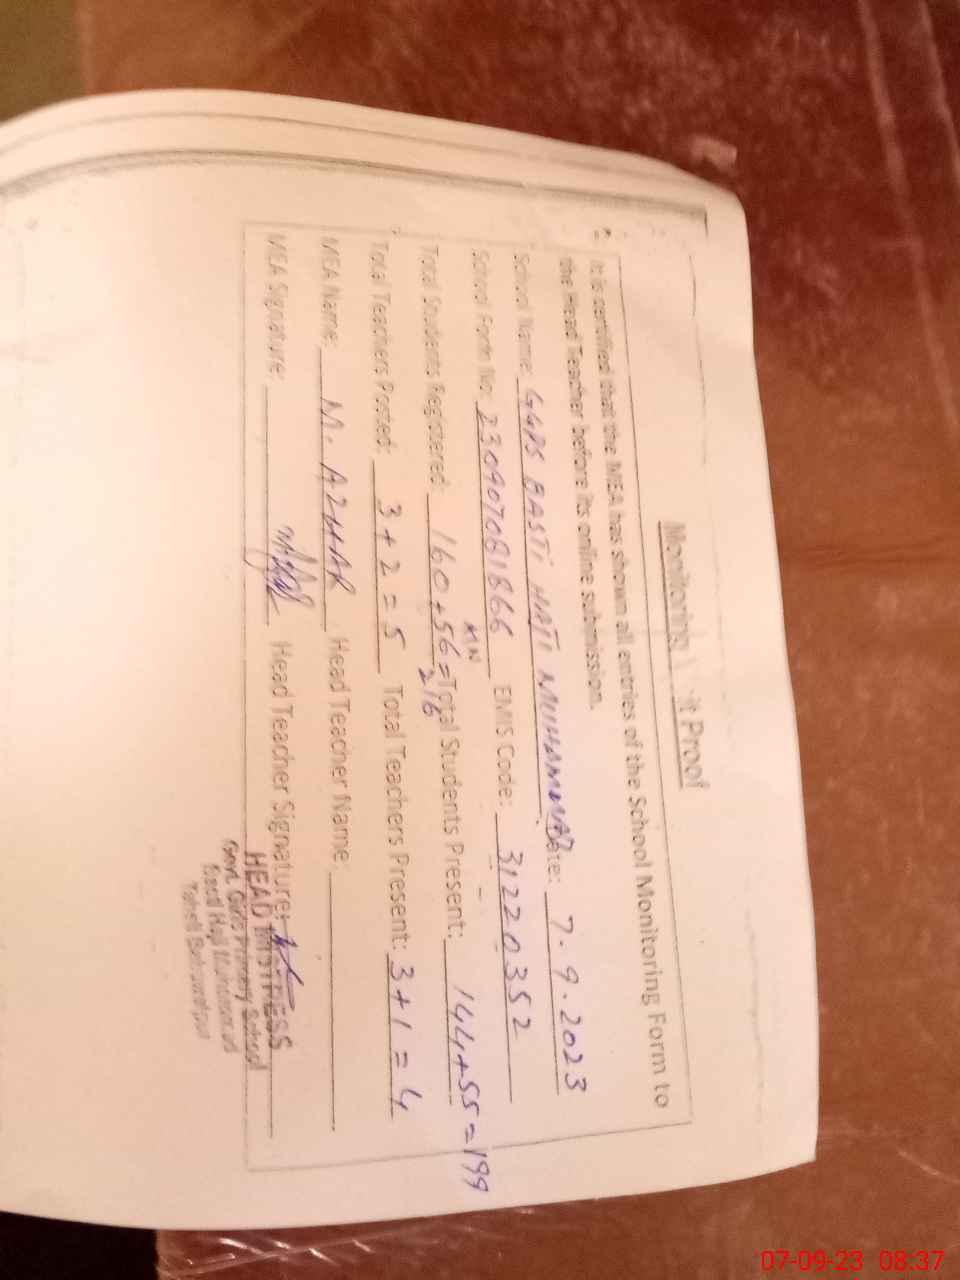 Monitoring Visit Proof
2. It is certified that the MEA has shown all entries of the School Monitoring Form to
the Head Teacher before its online submission.
School Name: GGPS BASTI HAJI MUHAMMAD Date: 7.9.2023
School Form No: 230907081866 EMIS Code: 31220352
Total Students Registered: 160+56=216 Total Students Present: 144+55=199
KIN
Total Teachers Posted: 3+2=5 Total Teachers Present: 3+1=4
MEA Name: M. AZHAR Head Teacher Name:
MEA Signature: Head Teacher Signature:
HEAD MISTRESS
Govt. Girls Primary School
Basti Haji Muhammad
Tehsil Bahawalpur
07-09-23 08:37